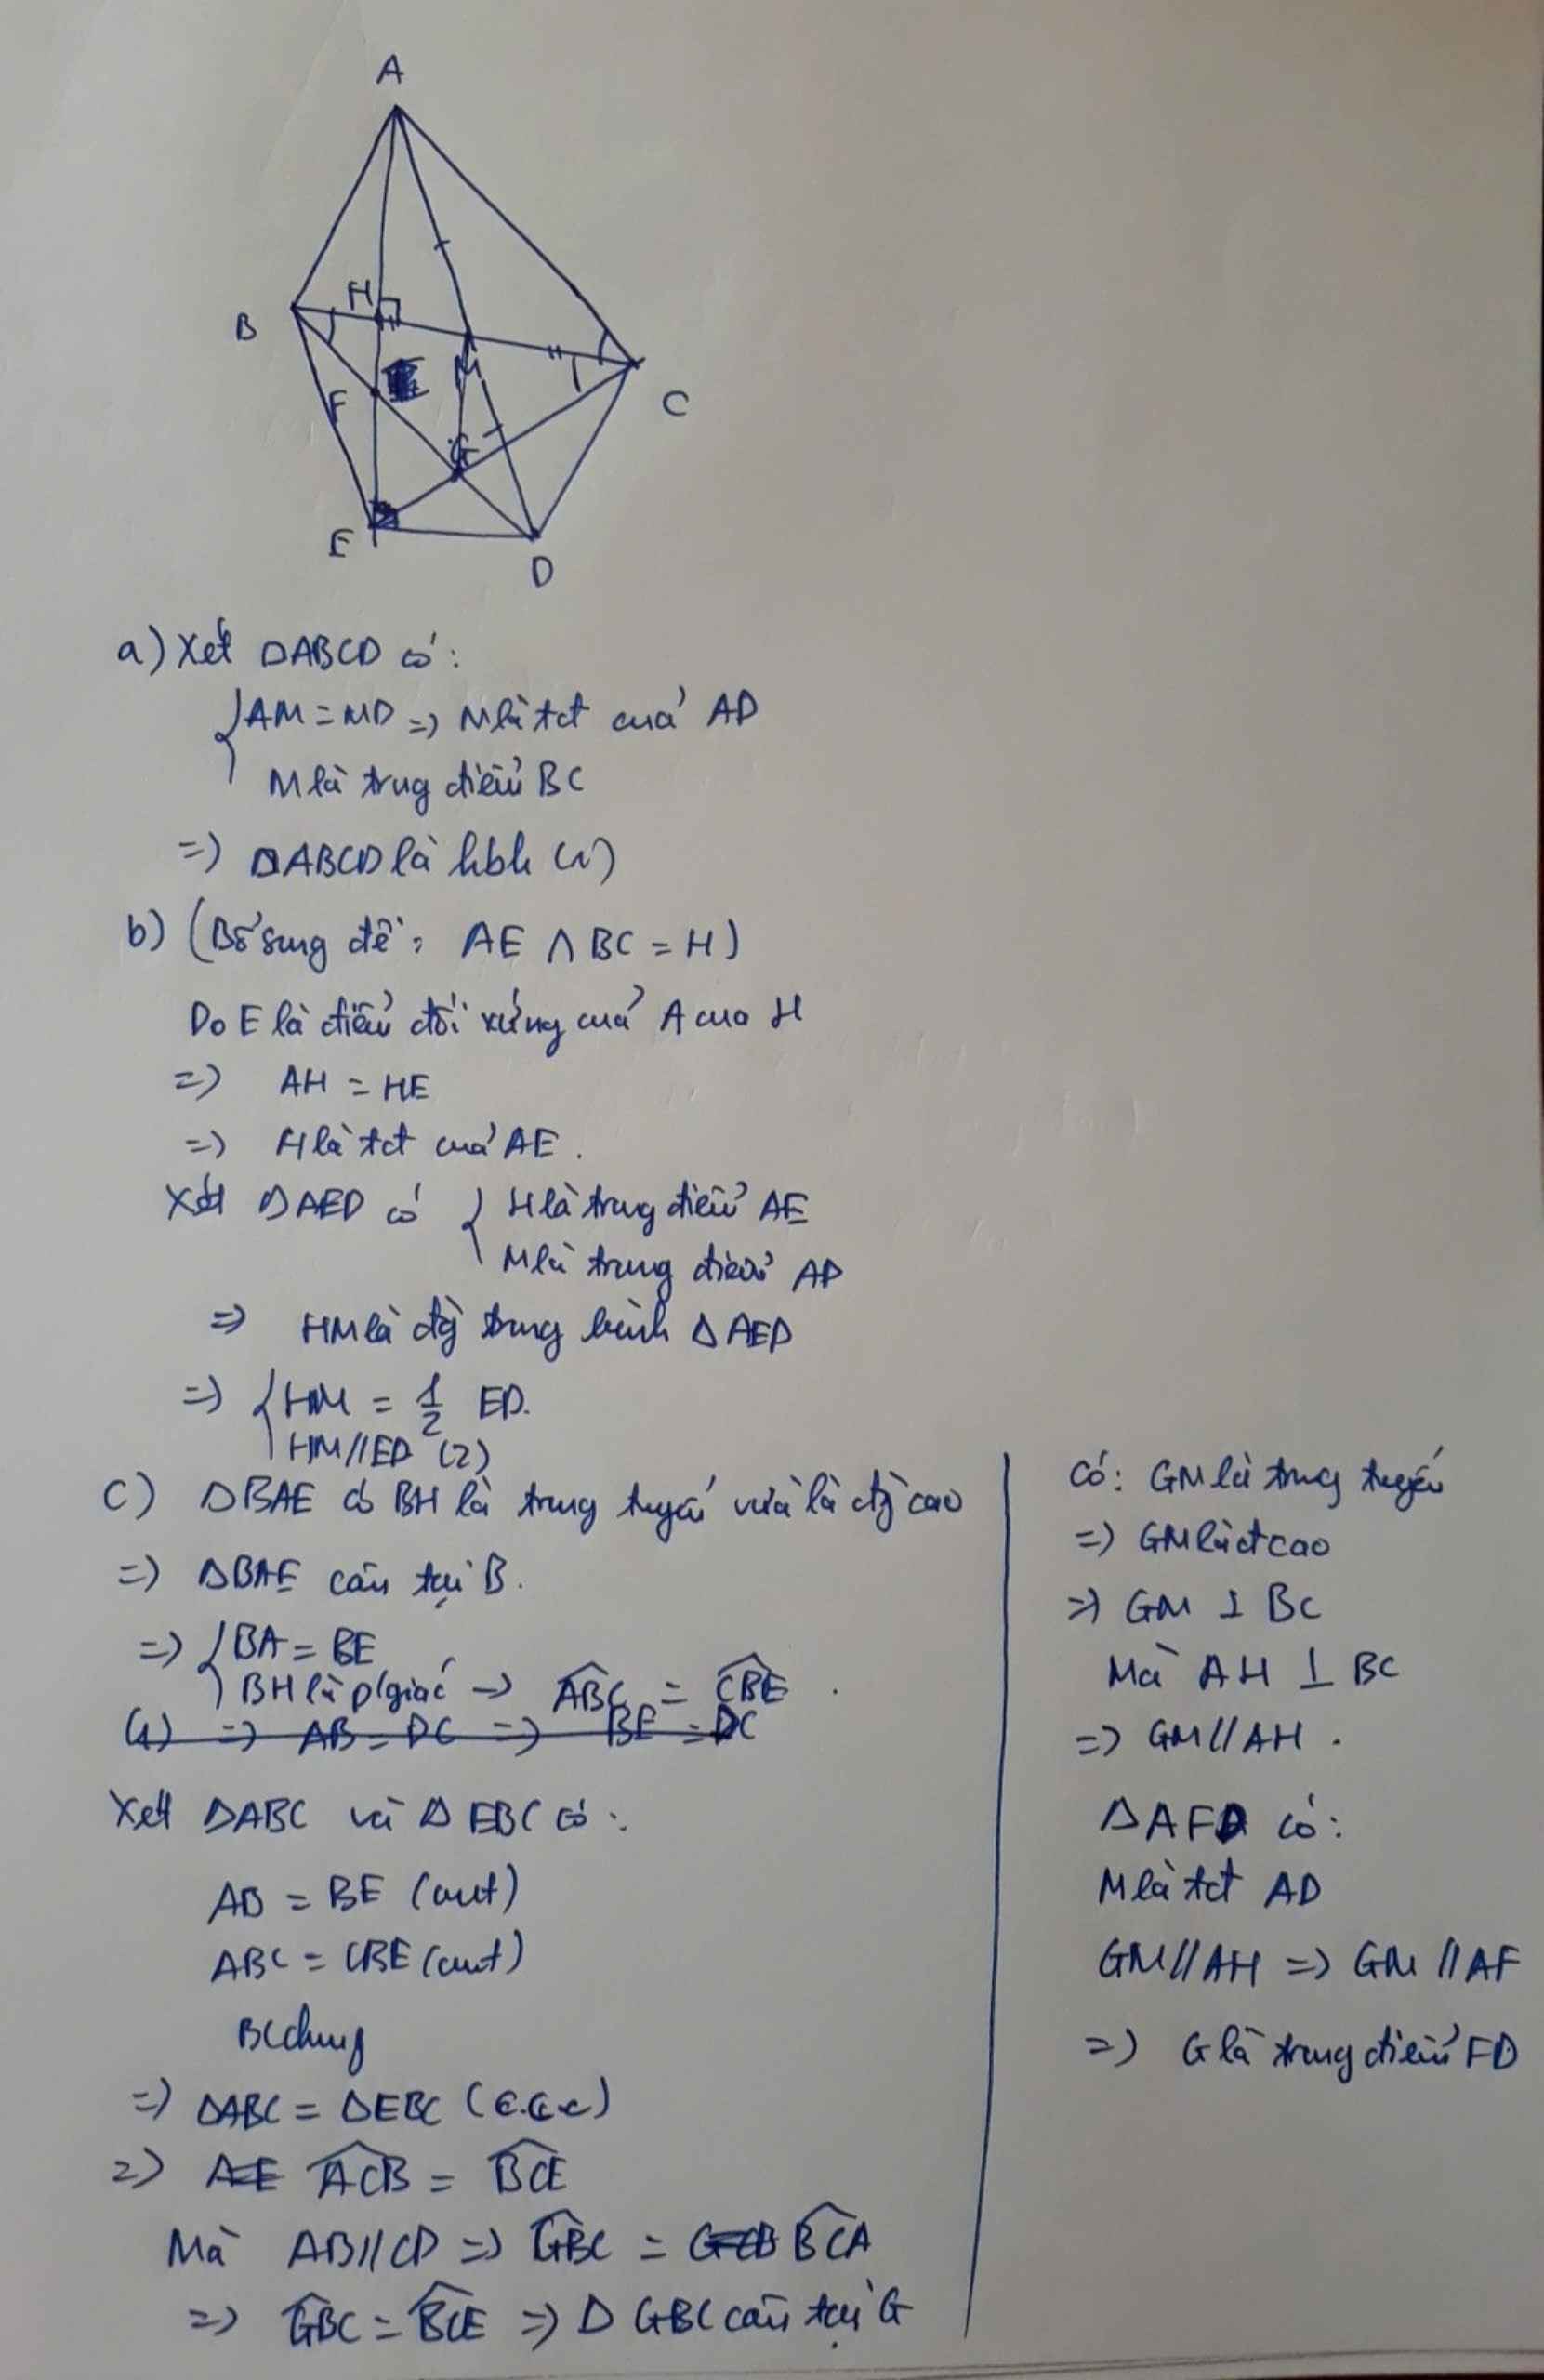 A
B
H
M
C
F
G
E
D
a) Xét □ABCD có:
AM = MD => M là tđ của AD
M là trung điểm BC
=> □ABCD là hbh (1)
b) (Bổ sung đề: AE ∩ BC = H)
Do E là điểm đối xứng của A qua H
=> AH = HE
=> H là tđ của AE.
Xét ΔAED có { H là trung điểm AE
M là trung điểm AD
=> HM là đg trung bình ΔAED
=> { HM = 1/2 ED.
HM // ED (2)
c) ΔBAE có BH là trung tuyến vừa là đg cao
=> ΔBAE cân tại B.
=> { BA = BE
BH là p/giác => ABC = CBE.
(1) => AB = DC => BE = DC
Xét ΔABC và ΔEBC có:
AB = BE (cmt)
ABC = CBE (cmt)
BC chung
=> ΔABC = ΔEBC (c.g.c)
=> ACB = BCE
Mà AB // CD => GBC = BCA
=> GBC = BCE => Δ GBC cân tại G
Có: GM là trung tuyến
=> GM là đ cao
=> GM ⊥ BC
Mà AH ⊥ BC
=> GM // AH.
ΔAFD có:
M là tđ AD
GM // AH => GM // AF
=> G là trung điểm FD